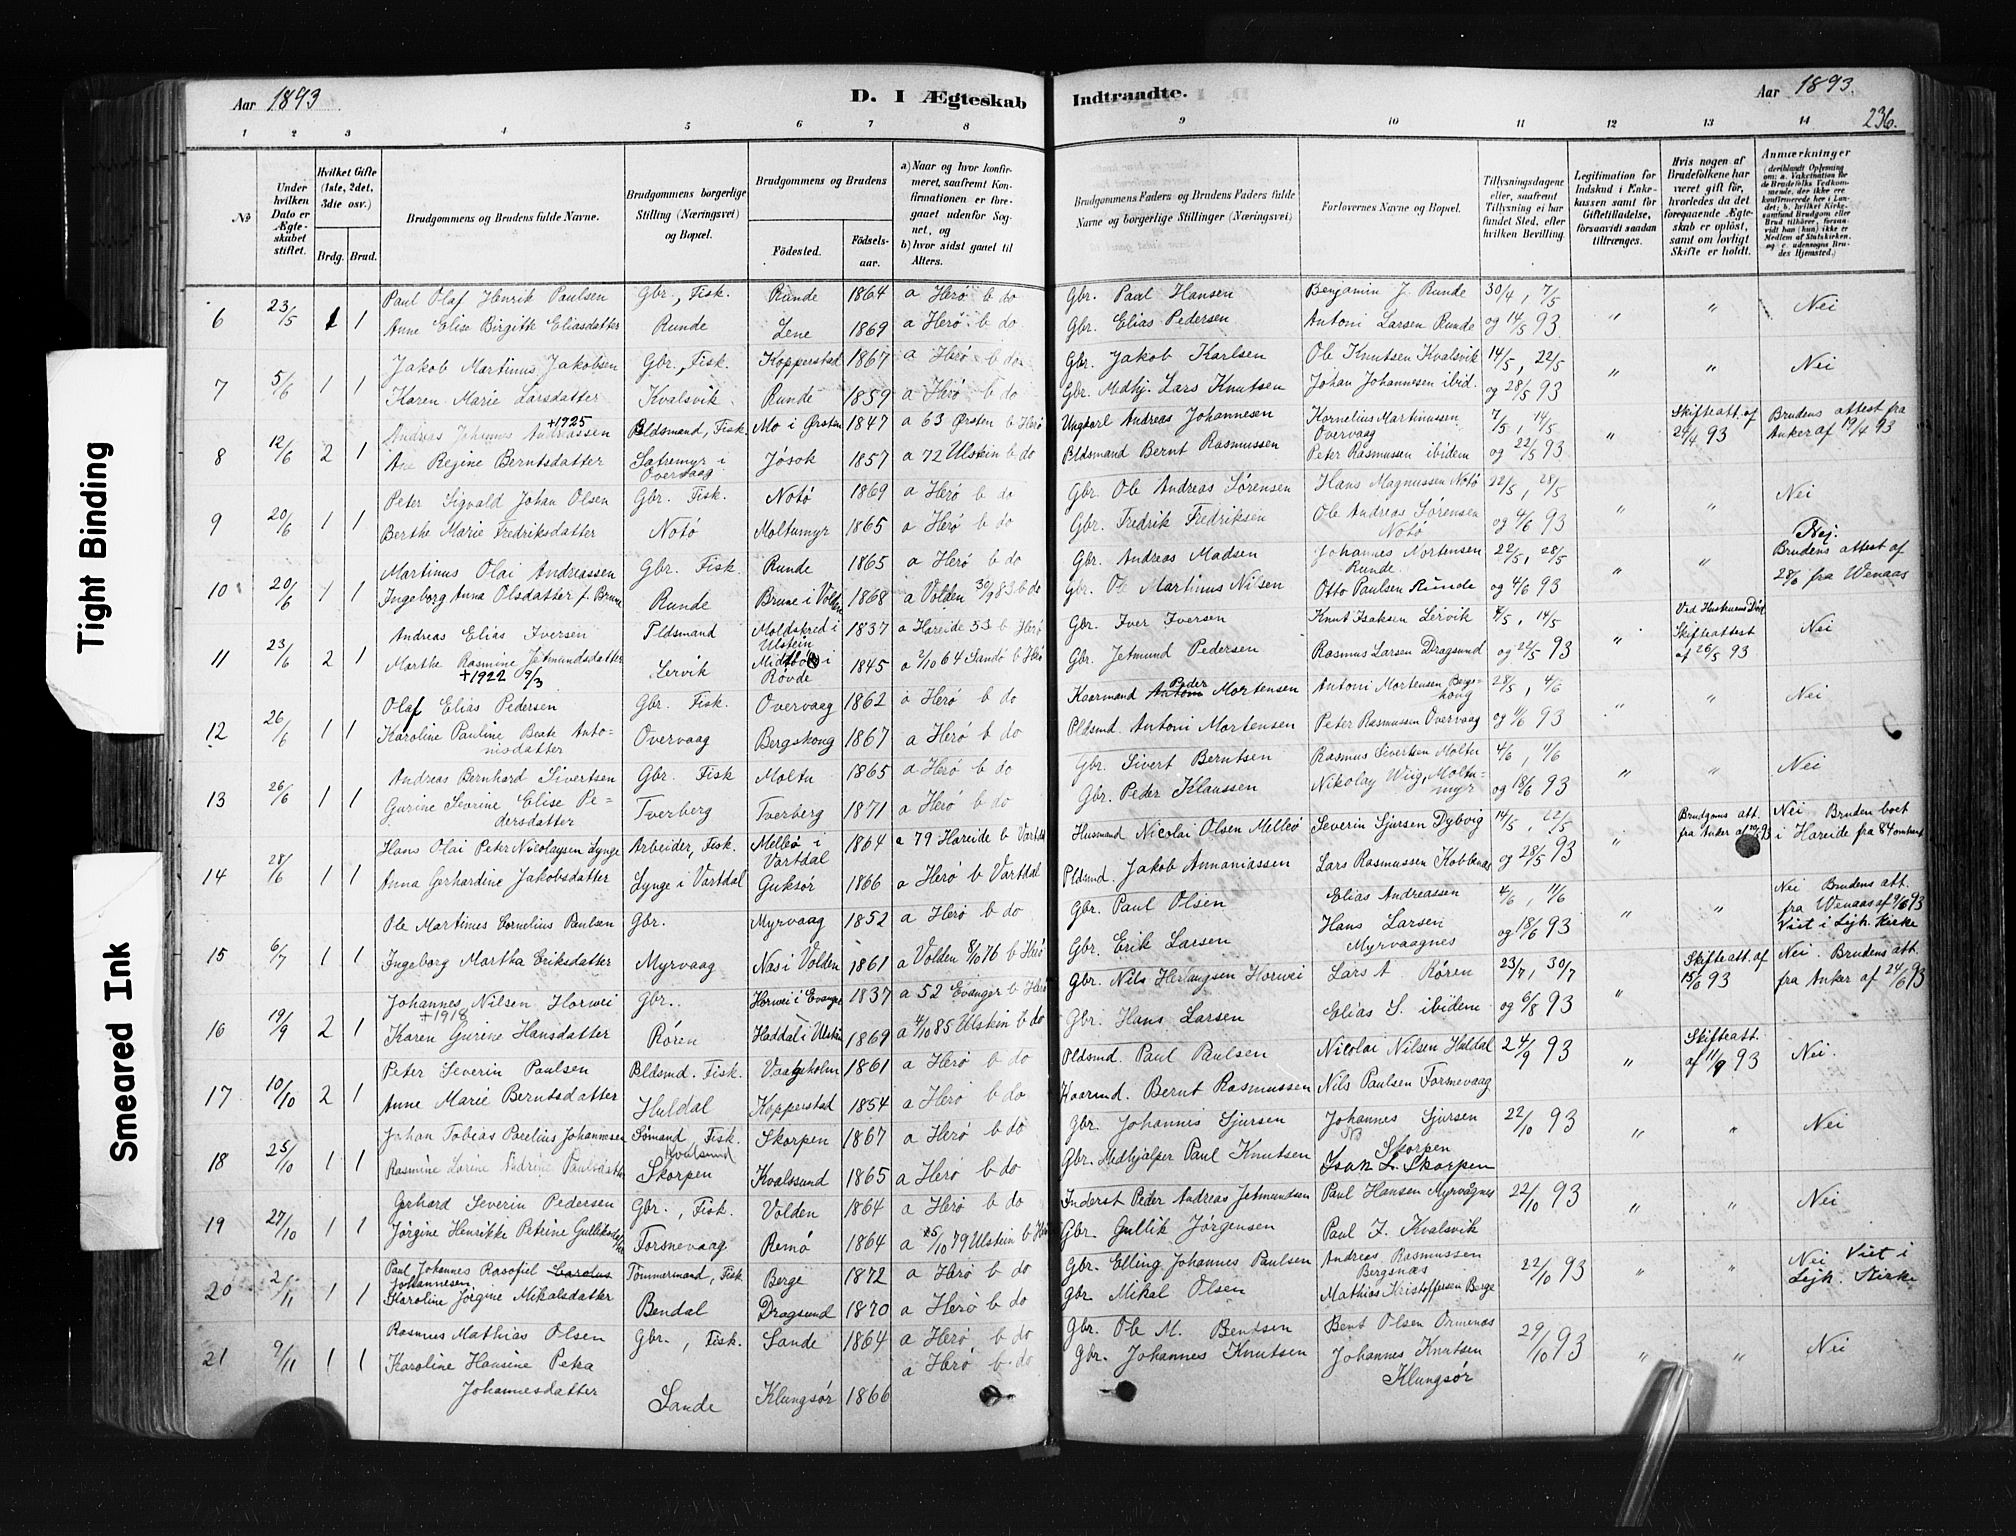 Aar 1893
D. I Ægteskab Indtraadte.
Aar 1893.
236.
1 2 3 4 5 6 7 8 9 10 11 12 13 14
No
Under hvilken Dato er Ægteskabet stiftet.
Hvilket Gifte (1ste, 2det, 3die osv.)
Brdg. Brud.
Brudgommens og Brudens fulde Navne.
Brudgommens borgerlige Stilling (Næringsvei) og Bopæl.
Brudgommens og Brudens
Fødested. Fødsels-aar.
a) Naar og hvor konfirmeret, saafremt Konfirmationen er foregaaet udenfor Sognet, og
b) hvor sidst ganet til Alters.
Brudgommens Faders og Brudens Faders fulde Navne og borgerlige Stillinger (Næringsvei)
Forlovernes Navne og Bopæl.
Tillysningsdagene eller, saafremt Tillysning ei har fundet Sted, efter hvilken Bevilling.
Legitimation for Indskud i Enkekassen samt for Giftetilladelse, forsaavidt saadan tiltrænges.
Hvis nogen af Brudefolkene har været gift før, hvorledes da det foregaaende Ægteskab er opløst, samt om lovligt Skifte er holdt.
Anmærkninger
Tight Binding
Smeared Ink
6 23/5 1 1 Paul Olaf Henrik Paulsen Gbr., Fisk. Runde 1864 a Herø b do Gbr. Paul Hansen Benjamin J. Runde 30/4, 7/5 " " Nei
Anne Elise Birgitte Eliasdatter Runde 1869 a Herø b do Gbr. Elias Pedersen Antoni Larsen Runde og 14/5 93
7 5/6 1 1 Jakob Martinus Jakobsen Gbr., Fisk. Kopperstad 1867 a Herø b do Gbr. Jakob Karlsen Ole Knutsen Kvalsvik 14/5, 22/5 " " Nei
Karen Marie Larsdatter Kvalsvik Runde 1859 a Herø b do Gbr. Medhj. Lars Knutsen Johan Johannesen ibid. og 28/5 93
8 12/6 2 1 Andreas Johannes Andreassen +1925 Pldsmand, Fisk. Mo i Ørsten 1847 a 63 Ørsten b Herø Ungkarl Andreas Johannesen Kornelius Martinussen Overvaag 7/5, 14/5 " Skifteatt. af 24/4 93 Brudens attest fra Anker af 19/4 93
Ane Regine Berntsdatter Sætremyr i Overvaag Jøsok 1857 a 72 Ulstein b do Pldsmand Bernt Rasmussen Peter Rasmussen ibidem og 22/5 93
9 20/6 1 1 Peter Sigvald Johan Olsen Gbr. Fisk. Notø 1869 a Herø b do Gbr. Ole Andreas Sørensen Hans Magnussen Notø 22/5, 28/5 " " Nei
Berthe Marie Fredriksdatter Notø Moltumyr 1865 a Herø b do Gbr. Fredrik Fredriksen Ole Andreas Sørensen Notø og 4/6 93
10 20/6 1 1 Martinus Olai Andreassen Gbr. Fisk. Runde 1865 a Herø b do Gbr. Andreas Madsen Johannes Mortensen Runde 22/5, 28/5 " " Nej. Brudens attest af 28/6 fra Wenaas
Ingeborg Anna Olsdatter f. Brune Runde Brune i Volden 1868 a Volden 30/9 83 b do Gbr. Ole Martinus Nilsen Otto Paulsen Runde og 4/6 93
11 23/6 2 1 Andreas Elias Iversen Pldsmand Moldskred i Ulstein 1837 a Hareide 53 b Herø Gbr. Iver Iversen Knut Isaksen Lervik 4/5, 14/5 " Ved Hustruens Død Skifteattest af 26/5 93 Nei
Marthe Rasmine Jetmundsdatter +1922 9/3 Lervik Røvde 1845 a 2/10 64 Sandø b Herø Gbr. Jetmund Pedersen Rasmus Larsen Dragsund og 22/5 93
12 26/6 1 1 Olaf Elias Pedersen Gbr. Fisk. Overvaag 1862 a Herø b do Kaarmand Peder Mortensen Antoni Mortensen Bergshoug 28/5, 4/6 " " Nei
Karoline Pauline Beate Antonisdatter Overvaag Bergshoug 1867 a Herø b do Pldsmd. Antoni Mortensen Peter Rasmussen Overvaag og 11/6 93
13 26/6 1 1 Andreas Bernhard Sivertsen Gbr. Fisk Moltu 1865 a Herø b do Gbr. Sivert Berntsen Rasmus Sivertsen Moltu 4/6, 11/6 " " Nei
Gurine Severine Elise Pedersdatter Tverberg Tverberg 1871 a Herø b do Gbr. Peder Klaussen Nikolay Wiig, Moltumyr og 18/6 93
14 28/6 1 1 Hans Olai Peter Nicolaysen Lynge Arbeider, Fisk. Melbø i Vartdal 1864 a 79 Hareide b Vartdal Husmand Nicolai Olsen Melbø Severin Sjursen Dybvig 14/5, 22/5 " Brudgoms att. fra Anker af 20/5 93 Nei Bruden boet i Hareide fra 84 omtrent
Anna Gerhardine Jakobsdatter Lynge i Vartdal Guksør 1866 a Herø b Vartdal Pldsmd. Jakob Annaniassen Lars Rasmussen Koblenæs og 28/5 93
15 6/7 1 1 Ole Martinus Cornelius Paulsen Gbr. Myrvaag 1852 a Herø b do Gbr. Paul Olsen Elias Andreassen 4/6, 11/6 " " Nei Brudens att. fra Wenaas af 9/6 93 Viet i Lejk. Kirke
Ingeborg Martha Eriksdatter Myrvaag Nas i Volden 1861 a Volden 8/10 76 b Herø Gbr. Erik Larsen Hans Larsen Myrvaagnes og 18/6 93
16 19/9 2 1 Johannes Nilsen Horwei +1918 Gbr. Horwei i Evanger 1837 a 52 Evanger b Herø Gbr. Nils Horwei Lars A. Røren 23/7, 30/7 " Skifteatt. af 15/6 93 Nei. Brudens att. fra Anker af 24/6 93
Karen Gurine Hansdatter Røren Haddal i Ulstein 1869 a 4/10 85 Ulstein b do Gbr. Hans Larsen Elias S. ibidem og 6/8 93
17 10/10 2 1 Peter Severin Paulsen Pldsmd. Fisk. Vaagsholm 1861 a Herø b do Pldsmd. Paul Paulsen Nicolai Nilsen Huldal 24/9 93 " Skifteatt. af 11/9 93 Nei.
Anne Marie Berntsdatter Huldal Kopperstad 1854 a Herø b do Kaarmd. Bernt Rasmussen Nils Paulsen Torsnevaag
18 25/10 1 1 Johan Tobias Paulius Johannesen Sømand, Fisk. Kvalsund Skorpen 1867 a Herø b do Gbr. Johannis Sjursen Johannes Sjursen Skorpen 22/10 93 " " Nei
Rasmine Lorine Andrine Paulsdatter Skorpen Kvalssund 1865 a Herø b do Gbr. Medhjælper Paul Knutsen Isak L. Skorpen
19 27/10 1 1 Gerhard Severin Pedersen Gbr., Fisk. Volden 1864 a Herø b do Inderst Peder Andreas Jetmundsen Paul Hansen Myrvågnes 22/10 93 " " Nei
Jørgine Henrikke Petrine Gulliksdatter Torsnevaag Remø 1864 a 25/10 79 Ulstein b Herø Gbr. Gullik Jørgensen Paul J. Kvalsvik
20 2/11 1 1 Paul Johannes Rasofiel Carolus Johannesen Tømmermand, Fisk. Berge 1872 a Herø b do Gbr. Elling Johannes Paulsen Andreas Rasmussen Bergsnæs 22/10 93 " " Nei Viet i Lejk. Kirke
Karoline Jørgine Mikalsdatter Bendal Dragsund 1870 a Herø b do Gbr. Mikal Olsen Mathias Kristoffersen Berge
21 9/11 1 1 Rasmus Mathias Olsen Gbr., Fisk. Sande 1864 a Herø b do Gbr. Ole M. Bendsen Bent Olsen Ormenæs 29/10 93 " " Nei
Karoline Hansine Petra Johannesdatter Sande Klungsør 1866 a Herø b do Gbr. Johannes Knutsen Johannes Knutsen Klungsør